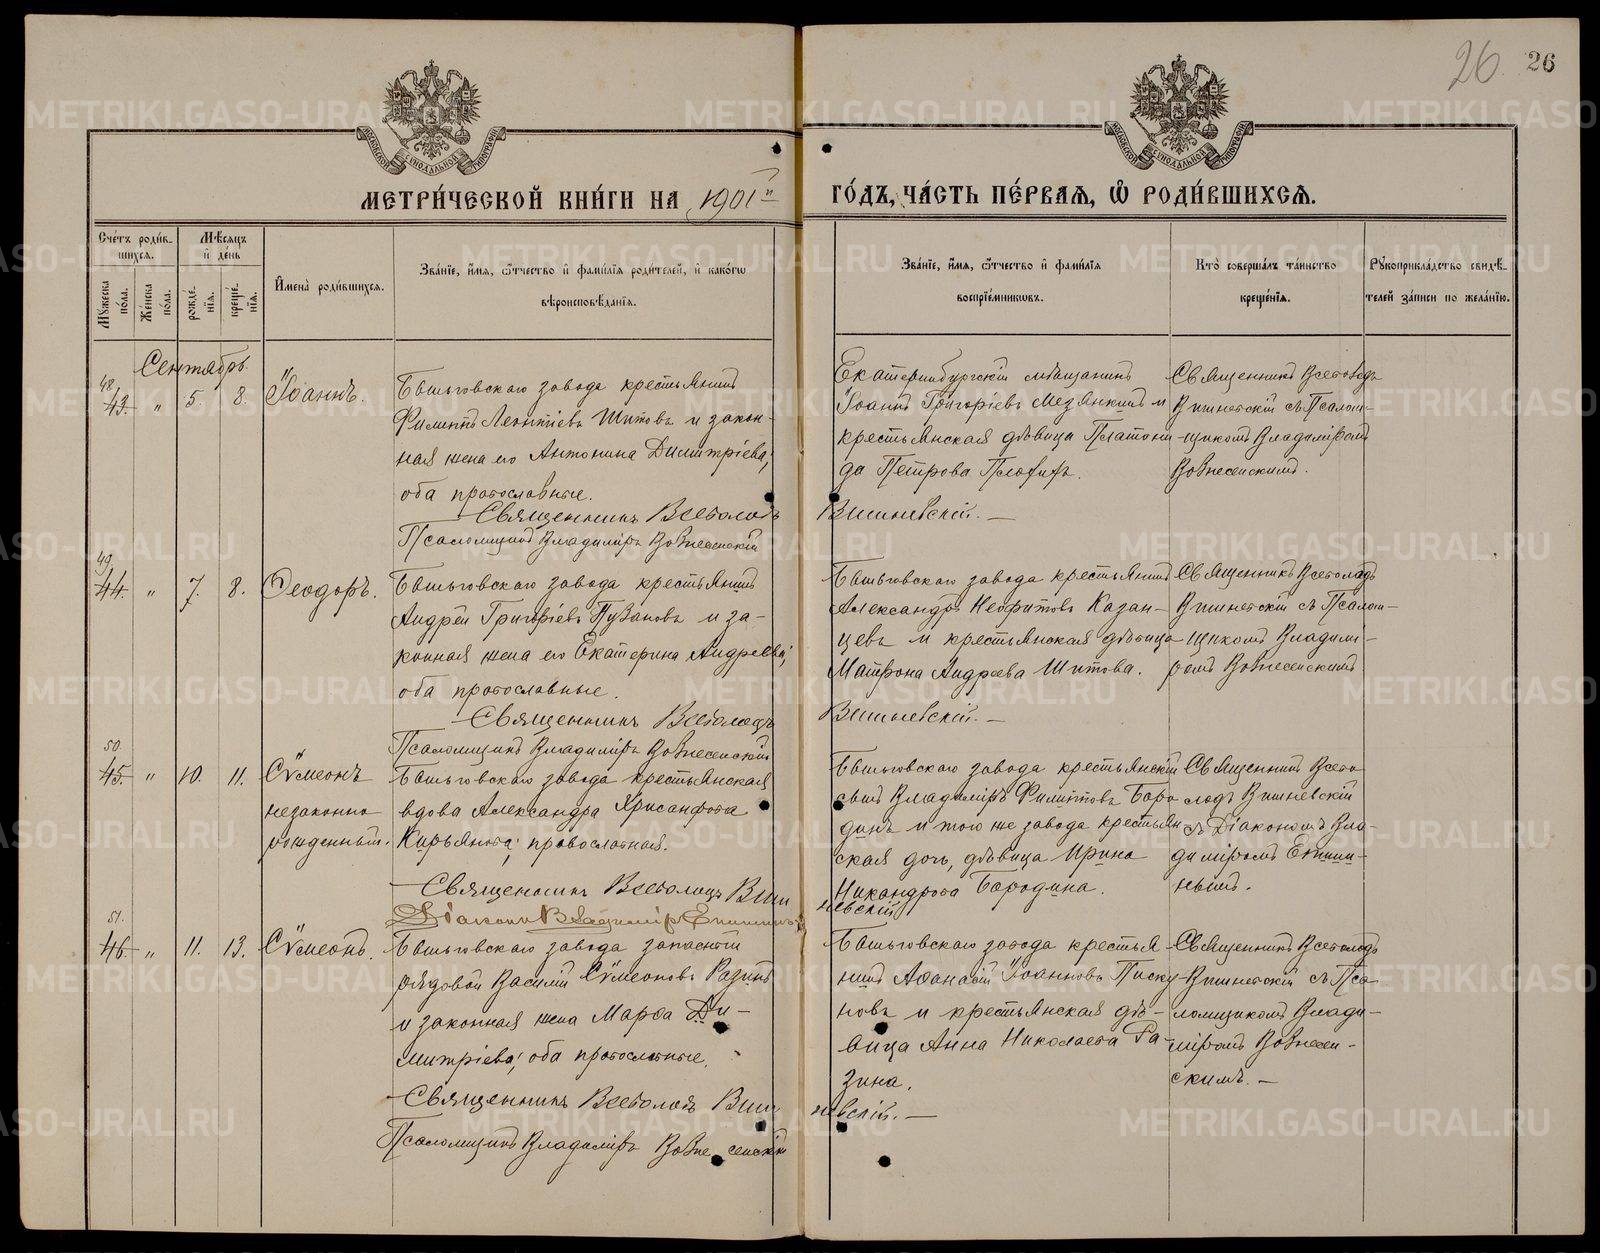 26 26
МОСКОВСКОЙ СѴНОДАЛЬНОЙ ТИПОГРАФІИ
МОСКОВСКОЙ СѴНОДАЛЬНОЙ ТИПОГРАФІИ
МЕТРИ́ЧЕСКОЙ КНИ́ГИ НА 1901й ГО́ДЪ, ЧА́СТЬ ПЕ́РВАЯ, Ѡ РОДИ́ВШИХСЯ.
Сче́тъ роди́в-
шихся.
Му́жеска по́ла.
Же́нска по́ла.
Мѣ́сяцъ
и҆ де́нь
рожде́-
нїя.
креще́-
нїя.
И҆мена̀ роди́вшихся.
Зва́нїе, и҆́мя, ѻ҆́тчество и҆ фами́лїя роди́телей, и҆ како́гѡ
вѣроисповѣ́данїя.
Зва́нїе, и҆́мя, ѻ҆́тчество и҆ фами́лїя
воспрїе́мникѡвъ.
Кто̀ соверша́лъ та́инство
креще́нїя.
Рꙋкоприкла́дство свидѣ́-
телей за́писи по жела́нїю.
Сентябрь.
48
43. " 5. 8. Іоаннъ.
Быньговскаго завода крестьянинъ
Филиппъ Леонтіевъ Шитовъ и закон-
ная жена его Антонина Димитріева,
оба православные.
Священникъ Всеволодъ Вишневскій.
Псаломщикъ Владиміръ Вознесенскій
Екатеринбургскій мѣщанинъ
Іоаннъ Григоріевъ Мезянкинъ и
крестьянская дѣвица Платони-
да Петрова
Священникъ Всеволодъ
Вишневскій съ Псалом-
щикомъ Владиміромъ
Вознесенскимъ.
49
44. " 7. 8. Ѳеодоръ.
Быньговскаго завода крестьянинъ
Андрей Григоріевъ Пузановъ и за-
конная жена его Екатерина Андреева,
оба православные.
Священникъ Всеволодъ Вишневскій.
Псаломщикъ Владиміръ Вознесенскій
Быньговскаго завода крестьянинъ
Александръ Неофитовъ Казан-
цевъ и крестьянская дѣвица
Матрона Андреева Шитова.
Священникъ Всеволодъ
Вишневскій съ Псалом-
щикомъ Владимі-
ромъ Вознесенскимъ
50.
45. " 10. 11. Сѵмеонъ
незаконно
рожденный.
Быньговскаго завода крестьянская
вдова Александра Хрисанфова
Кирьянова, православная.
Священникъ Всеволодъ Вишневскій
Діаконъ Владиміръ Епишинъ
Быньговскаго завода крестьянскій
сынъ Владиміръ Филипповъ Боро
динъ и того же завода крестьян
ская дочь, дѣвица Ирина
Никандрова Бородина.
Священникъ Всево
лодъ Вишневскій
съ Діакономъ Вла-
диміромъ Епиши-
нымъ.
51.
46. " 11. 13. Сѵмеонъ.
Быньговскаго завода запасный
рядовой Василій Сѵмеоновъ Разинъ
и законная жена Марѳа Ди-
митріева, оба православные.
Священникъ Всеволодъ Вишневскій.
Псаломщикъ Владиміръ Вознесенскій
Быньговскаго завода крестья-
нинъ Аѳанасій Іоанновъ Писку-
новъ и крестьянская дѣ-
вица Анна Николаева Ра-
зина.
Священникъ Всеволодъ
Вишневскій съ Пса
ломщикомъ Влади-
міромъ Вознесен-
скимъ.
METRIKI.GASO-URAL.RU